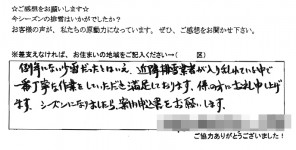 ☆ご感想をお願いします☆
今シーズンの排雪はいかがでしたか?
お客様の声が、私たちの原動力になっています。ぜひ、ご感想をお聞かせ下さい。
※差支えなければ、お住まいの地域をご記入ください→(　　区)
例年にない少雪だったとはいえ、近隣排雪業者が入り乱れている中で
一番丁寧な作業をしていただき満足しております。係の方にお礼申し上げ
ます。シーズンになりましたら、案内申込書をお願いします。
ご協力ありがとうございました!